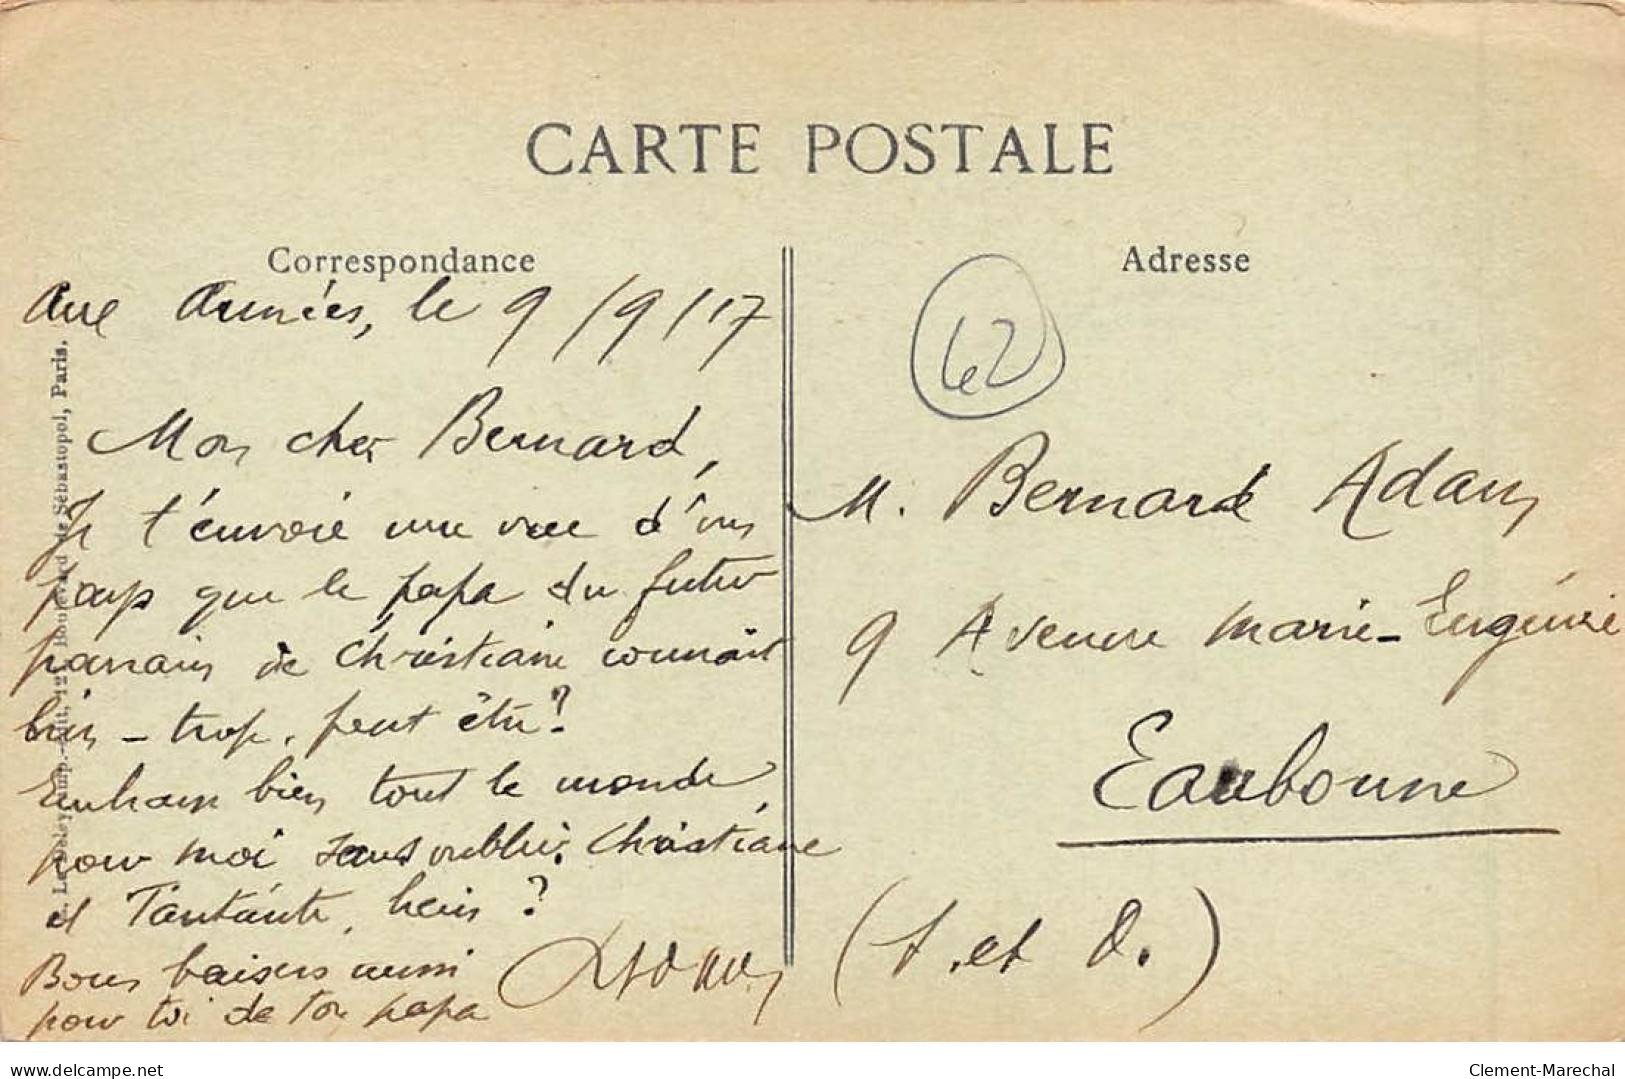 CARTE POSTALE
Correspondance
Adresse
Aux Armées, le 9/9/17
Mon cher Bernard,
Je t'envoie une vue d'un
pays que le papa du futur
parrain de Christiane connait
bien - trop, peut être?
Embrasse bien tout le monde,
pour moi sans oublier Christiane
et Tantante, hein?
Bons baisers aussi
pour toi de ton papa
Adam
42
M. Bernard Adam
9 Avenue Marie-Eugénie
Eaubonne
(S. et O.)
Le Deley, Imp.-Edit, 127, Boulevard de Sébastopol, Paris.
www.delcampe.net
Clement-Marechal